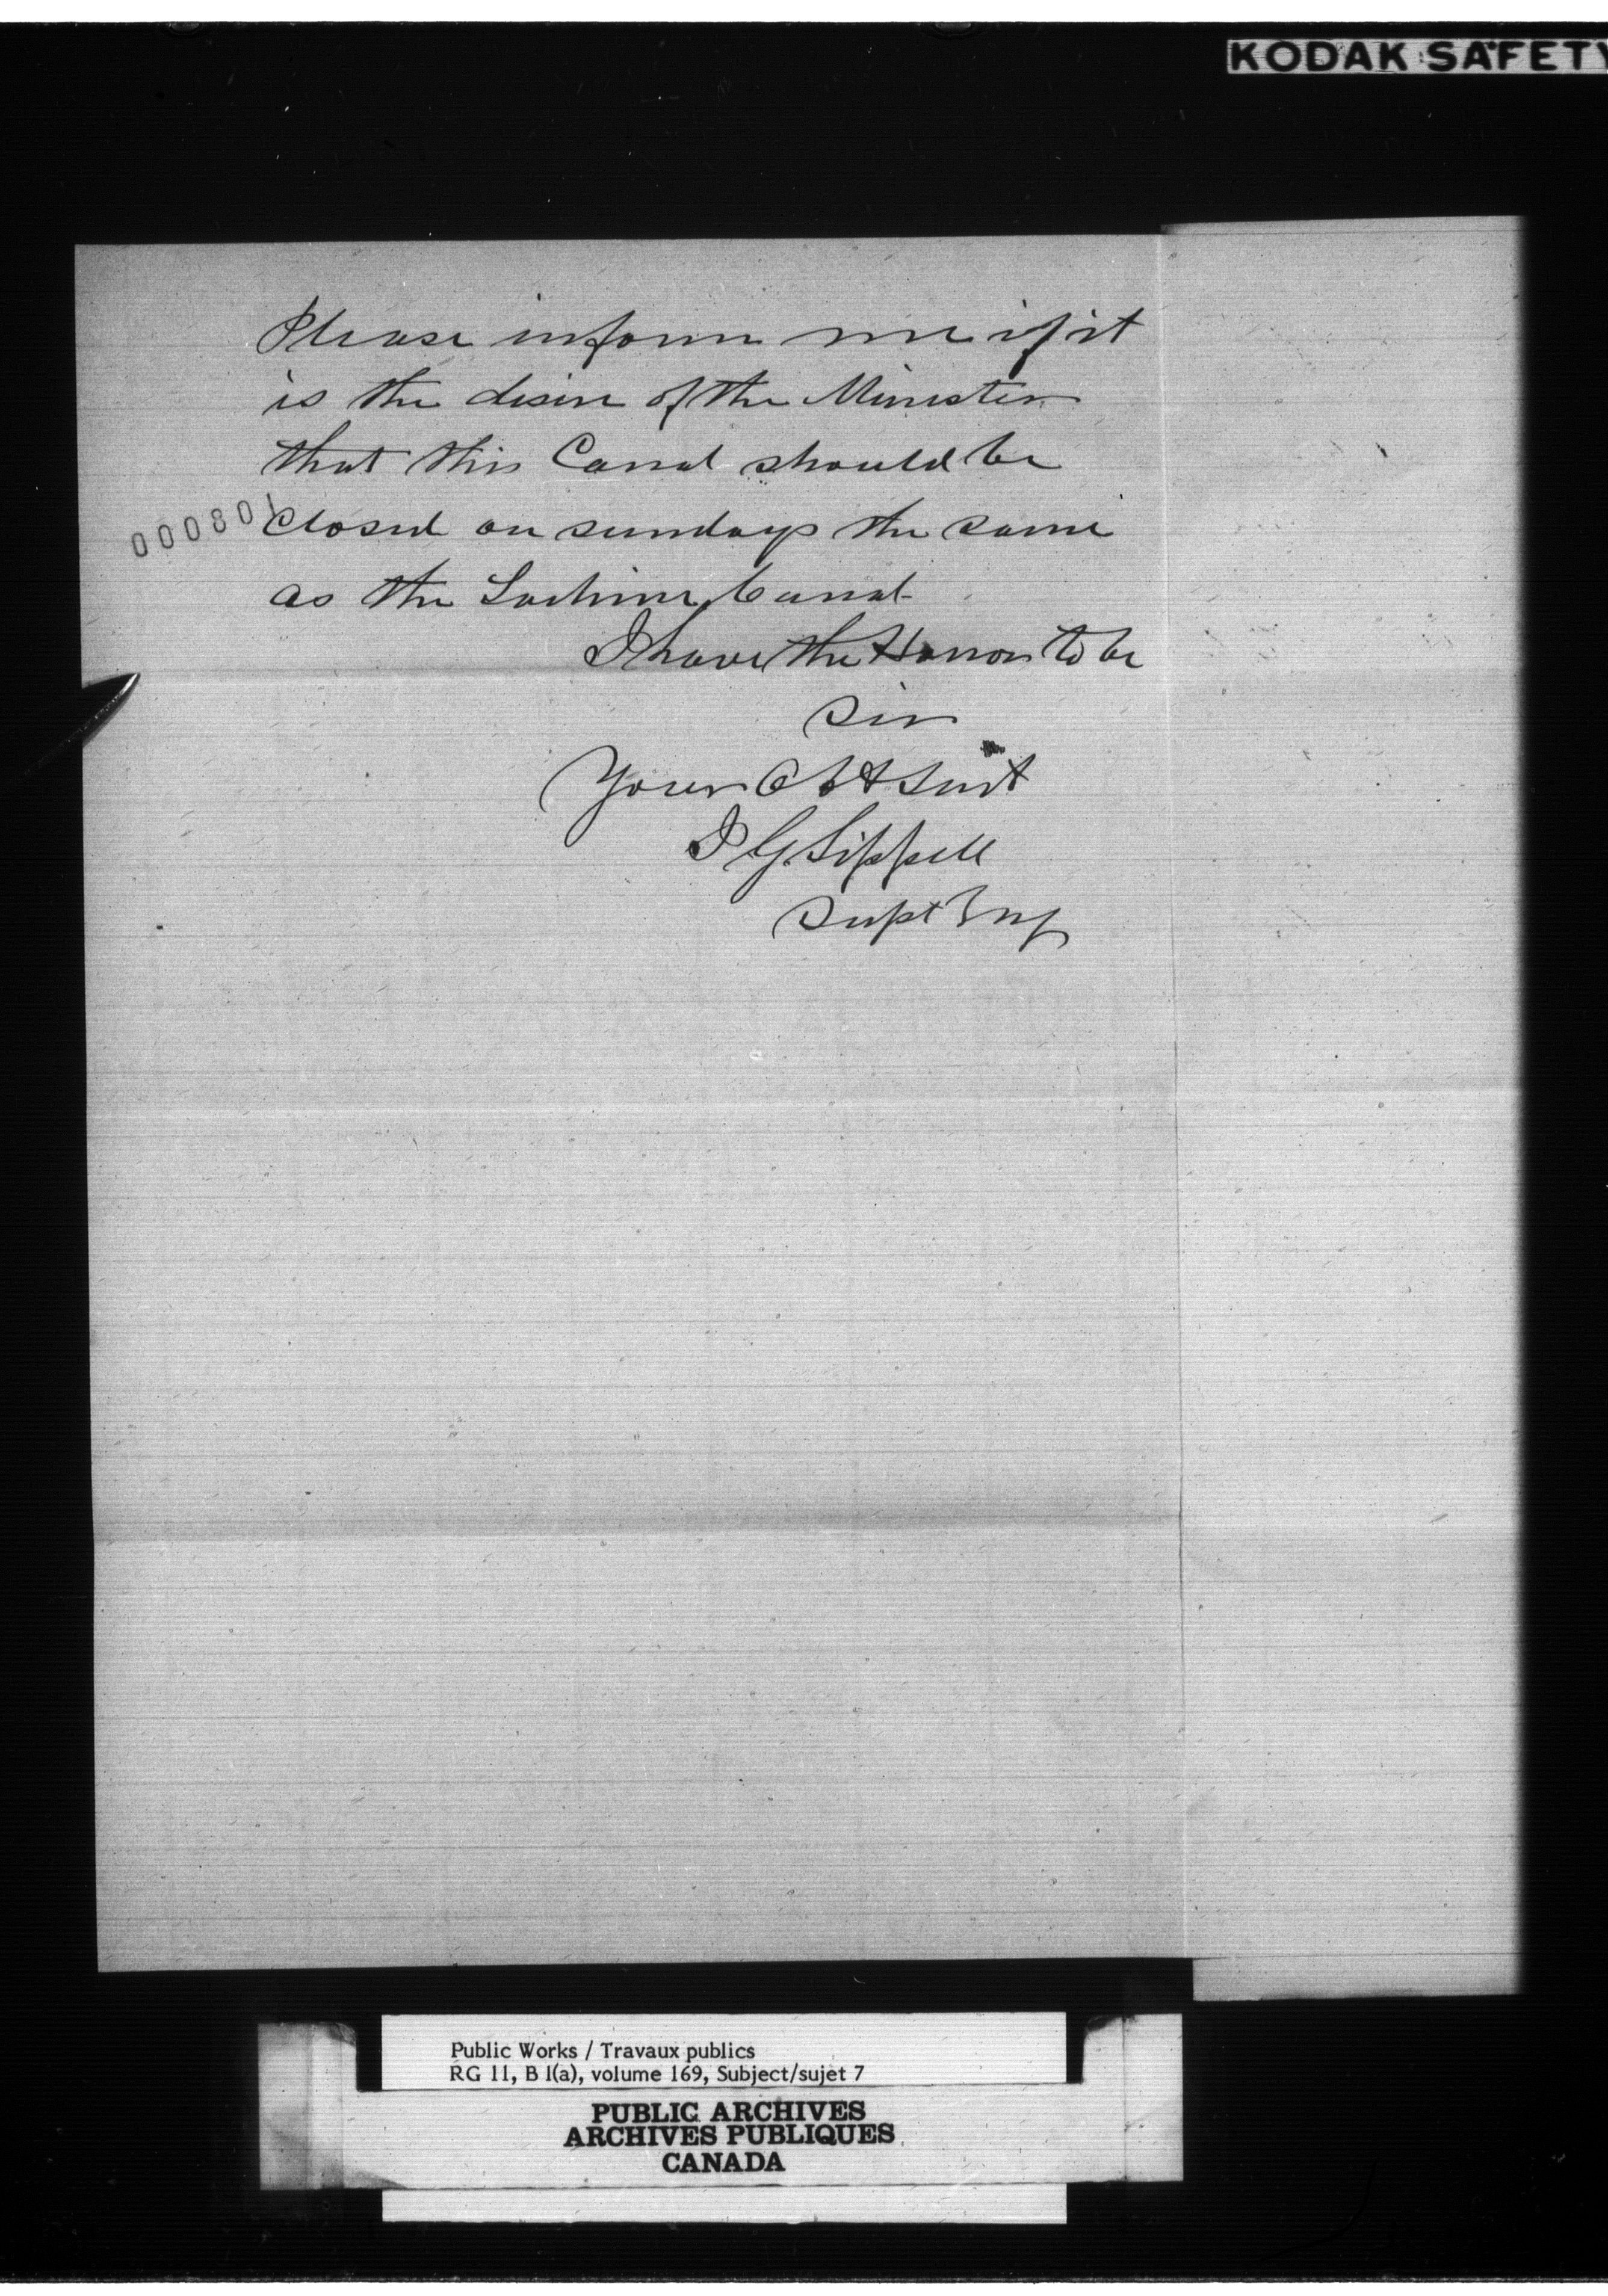 KODAK SAFETY
Please inform me if it
is the desire of the Minister
that this Canal should be
000801
closed on sundays the same
as the Lachine Canal
I have the Honor to be
Sir
Your Obt Servt
J G Sippell
Supt Eng
Public Works / Travaux publics
RG 11, B 1(a), volume 169, Subject/sujet 7
PUBLIC ARCHIVES
ARCHIVES PUBLIQUES
CANADA